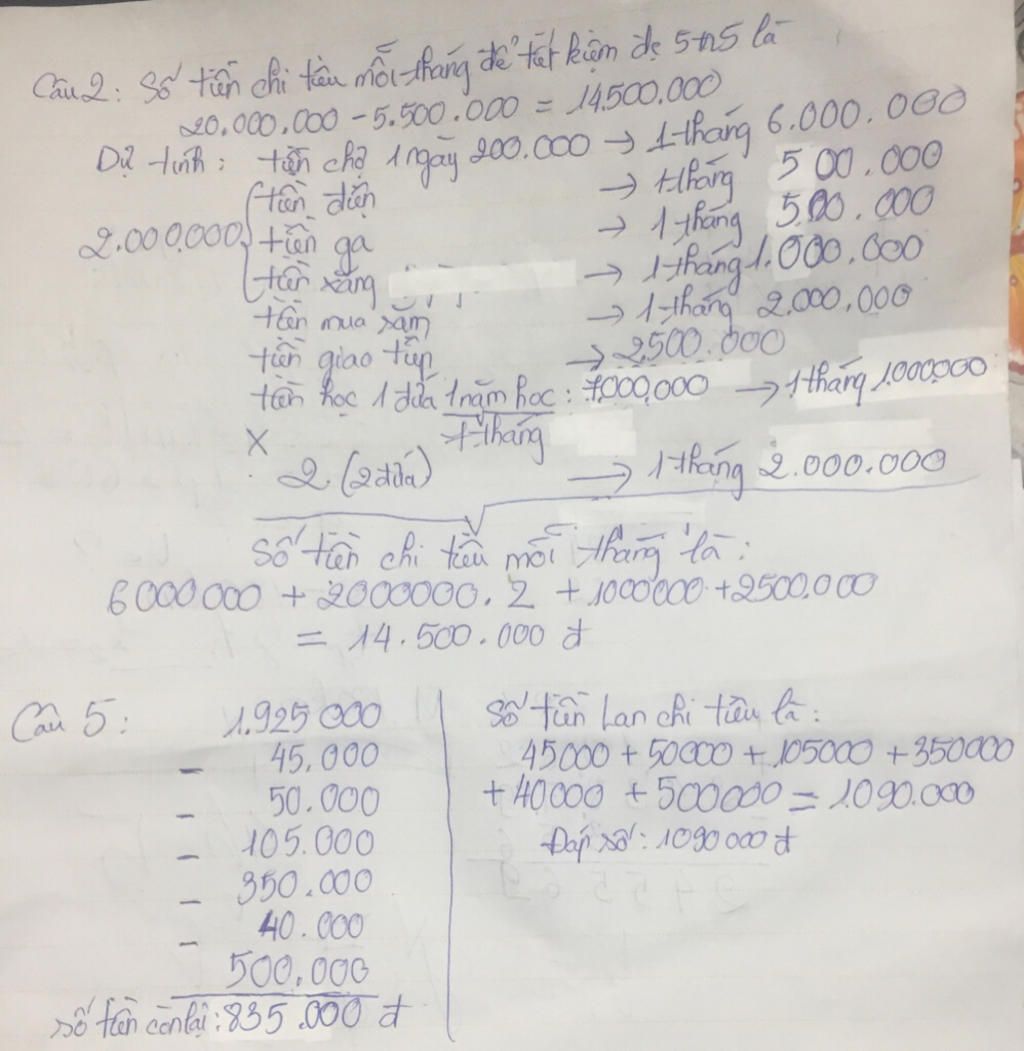 Câu 2: Số tiền chi tiêu mỗi tháng để tiết kiệm đc 5tr5 là
20.000.000 - 5.500.000 = 14.500.000
Dự tính: tiền chợ 1 ngày 200.000 → 1 tháng 6.000.000
tiền điện → 1 tháng 500.000
2.000.000 { tiền ga → 1 tháng 500.000
tiền xăng → 1 tháng 1.000.000
tiền mua sắm → 1 tháng 2.000.000
tiền giao tiếp → 2500.000
tiền học 1 đứa 1 năm học : 7000,000 → 1 tháng 1.000000
7 tháng
x
2 (2 đứa) → 1 tháng 2.000.000
Số tiền chi tiêu mỗi tháng là:
6000000 + 2000000. 2 + 1000000 + 2500.000
= 14.500.000 đ
Câu 5: 1.925000
- 45.000
- 50.000
- 105.000
- 350.000
- 40.000
- 500.000
Số tiền còn lại: 835.000 đ
Số tiền Lan chi tiêu là:
45000 + 50000 + 105000 + 350000
+ 40000 + 500000 = 1.090.000
Đáp số: 1090000 đ